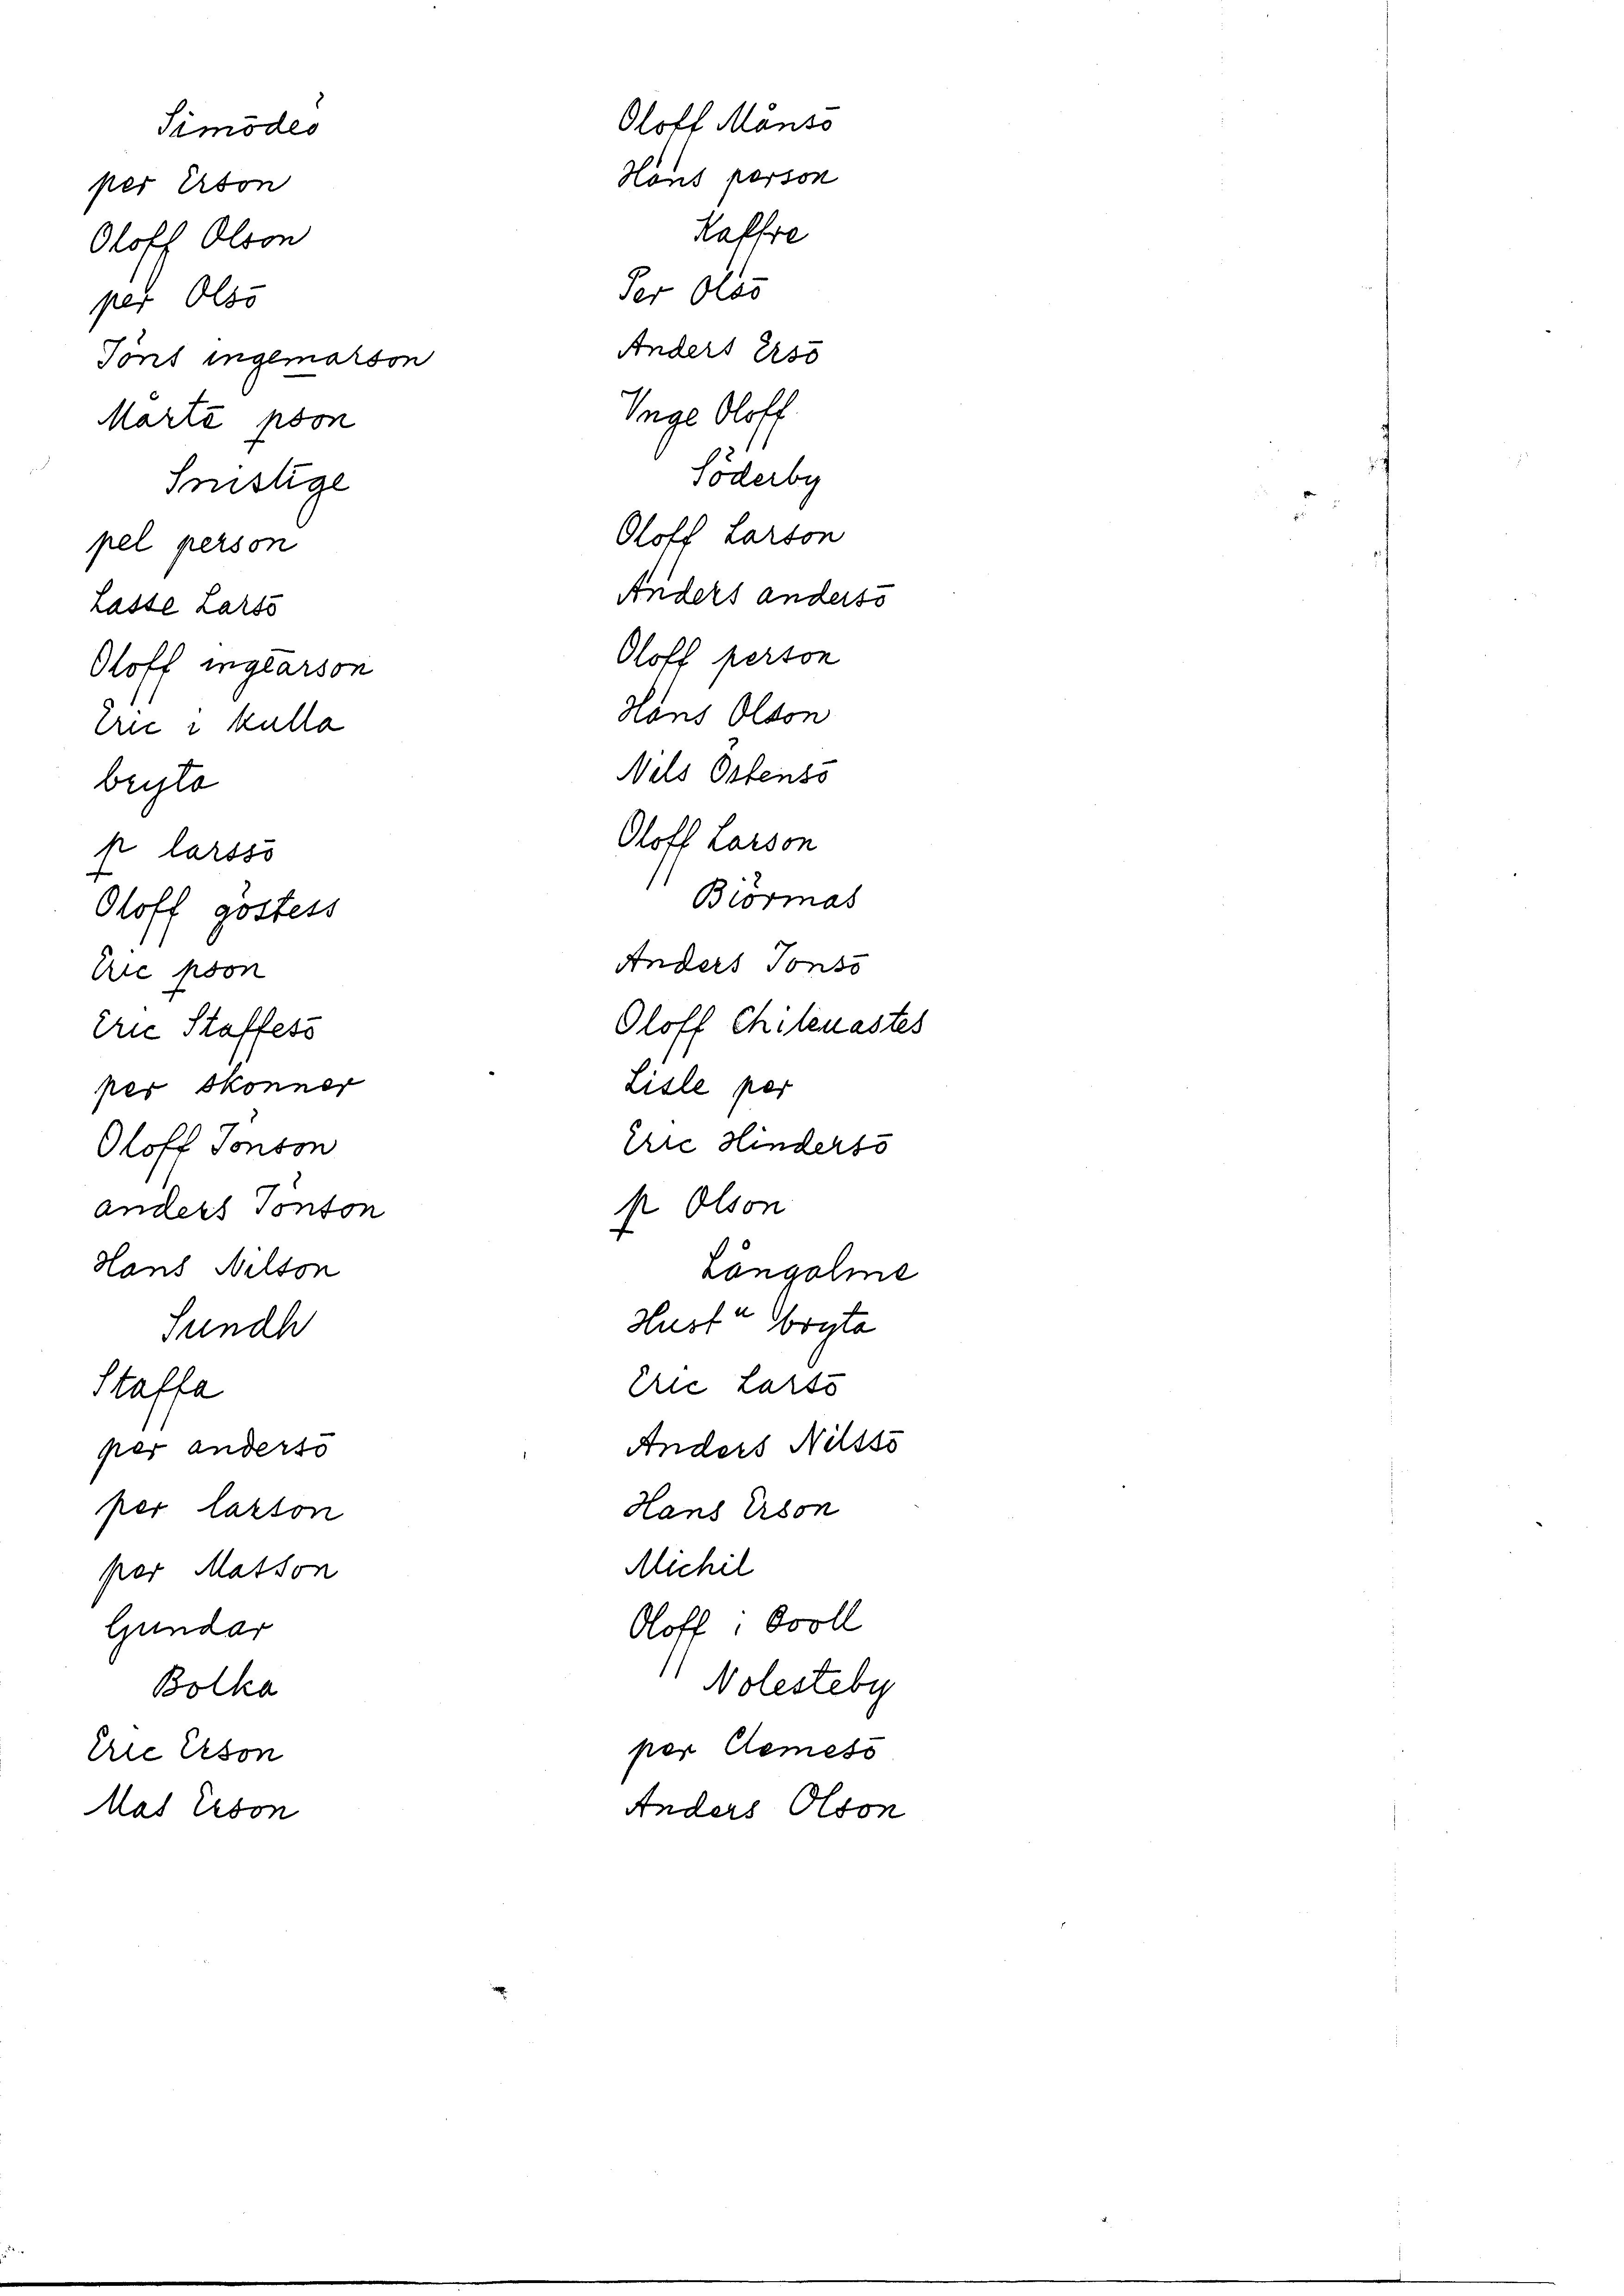 Simödes
per Erson
Oloff Olson
per Olsō
Jöns ingemarson
Märtē pson
Snistige
pel person
Lasse Larsō
Oloff ingēarson
Eric i kulla
bryta
p larssō
Oloff göstess
Eric pson
Eric Staffesō
per skonner
Oloff Jonson
anders Jönson
Hans Nilson
Sundh
Staffa
per andersō
per larson
per Matson
Gundar
Bolka
Eric Erson
Mas Erson
Oloff Månsō
Hans person
Kaffre
Per Olsō
Anders Ersō
Vnge Oloff
Söderby
Oloff Larson
Anders andersō
Oloff person
Hans Olson
Nils Östensō
Oloff Larson
Biörmas
Anders Jonsō
Oloff
Lisle per
Eric Hindersō
p Olson
Långalme
Hust u bryta
Eric Larsō
Anders Nilssō
Hans Erson
Michil
Oloff i
Nolesteby
per Clemesō
Anders Olson